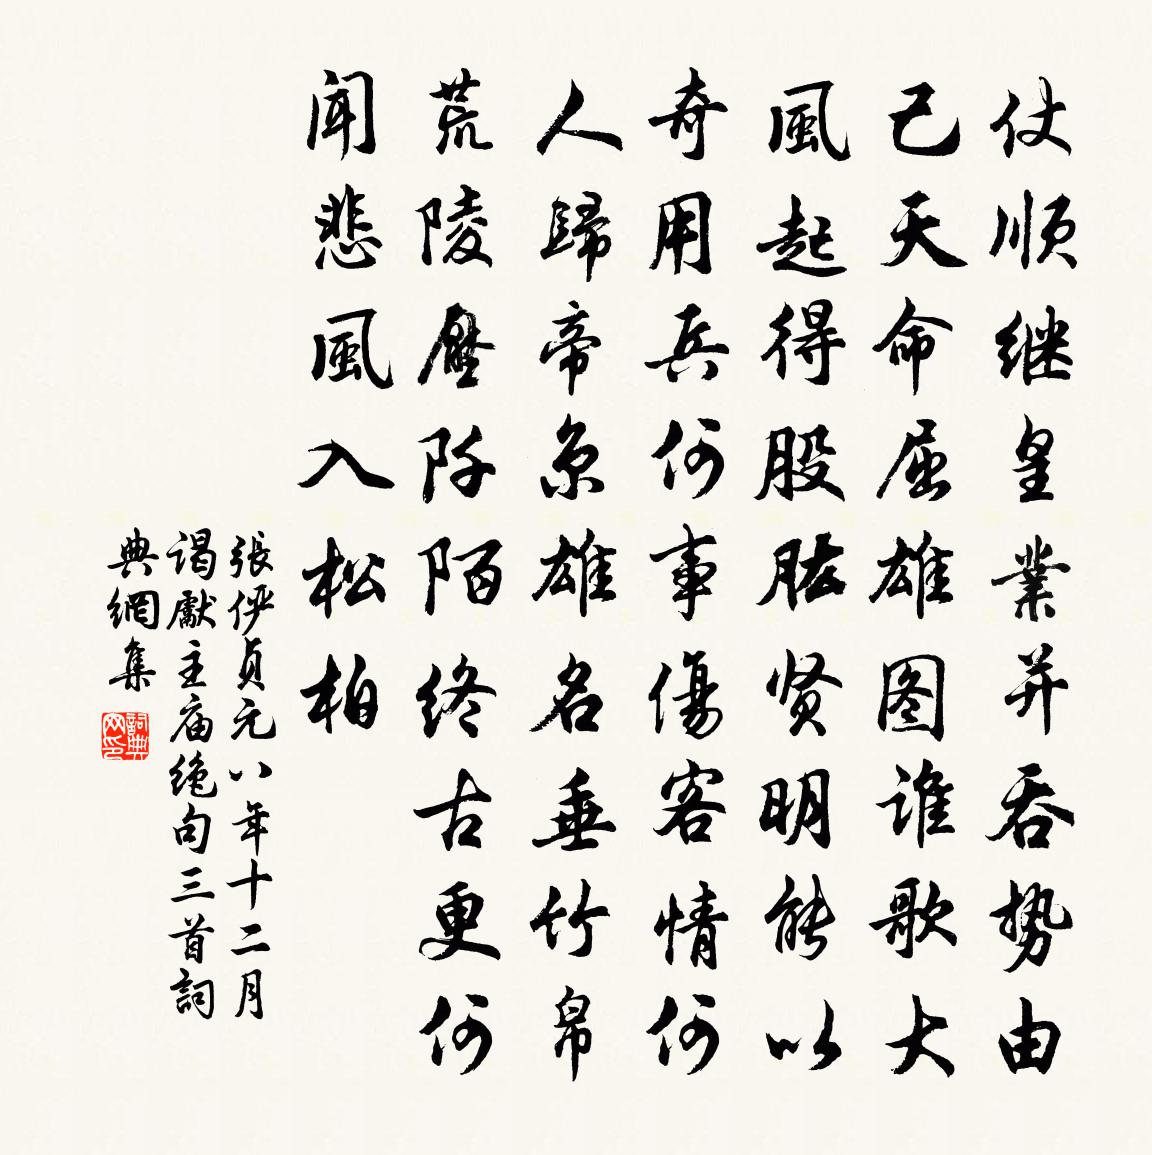 仗顺继皇業并吞势由
己天命屈雄图谁歌大
風起得股肱贤明能以
奇用兵何事傷客情何
人歸帝京雄名垂竹帛
荒陵壓阡陌终古更何
闻悲風入松柏
張俨贞元八年十二月
谒獻主庙绝句三首詞
典網集
詞典
网印